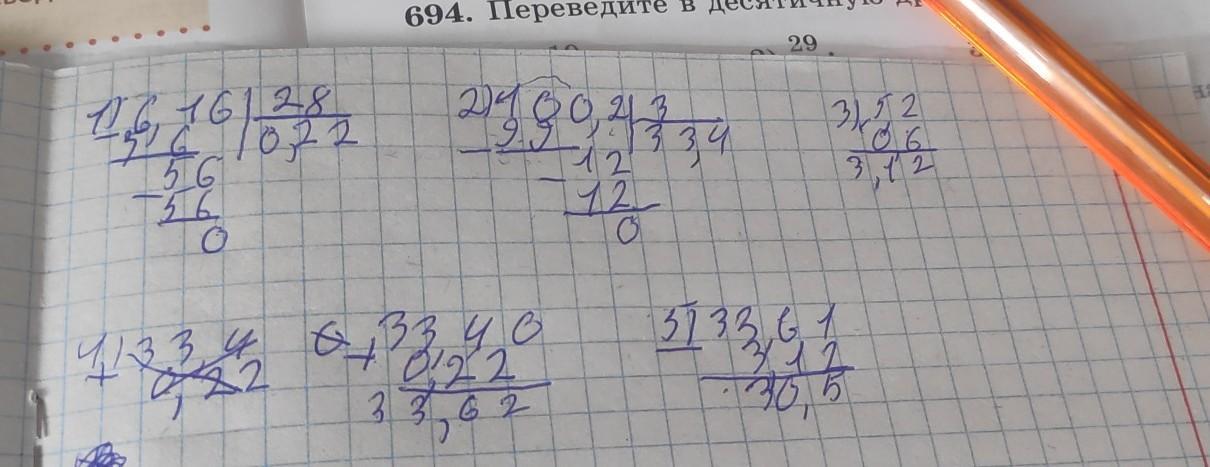 694. Переведите в десятичную
29
1) 6,16 | 28
- 5,6 | 0,22
56
- 56
0
2) 100,2 | 3
- 99 | 33,4
- 12
12
0
3) 52
06
3,12
4) 33,4
+ 0,22
33,40
+ 0,22
33,62
5) 33,61
- 3,12
30,5